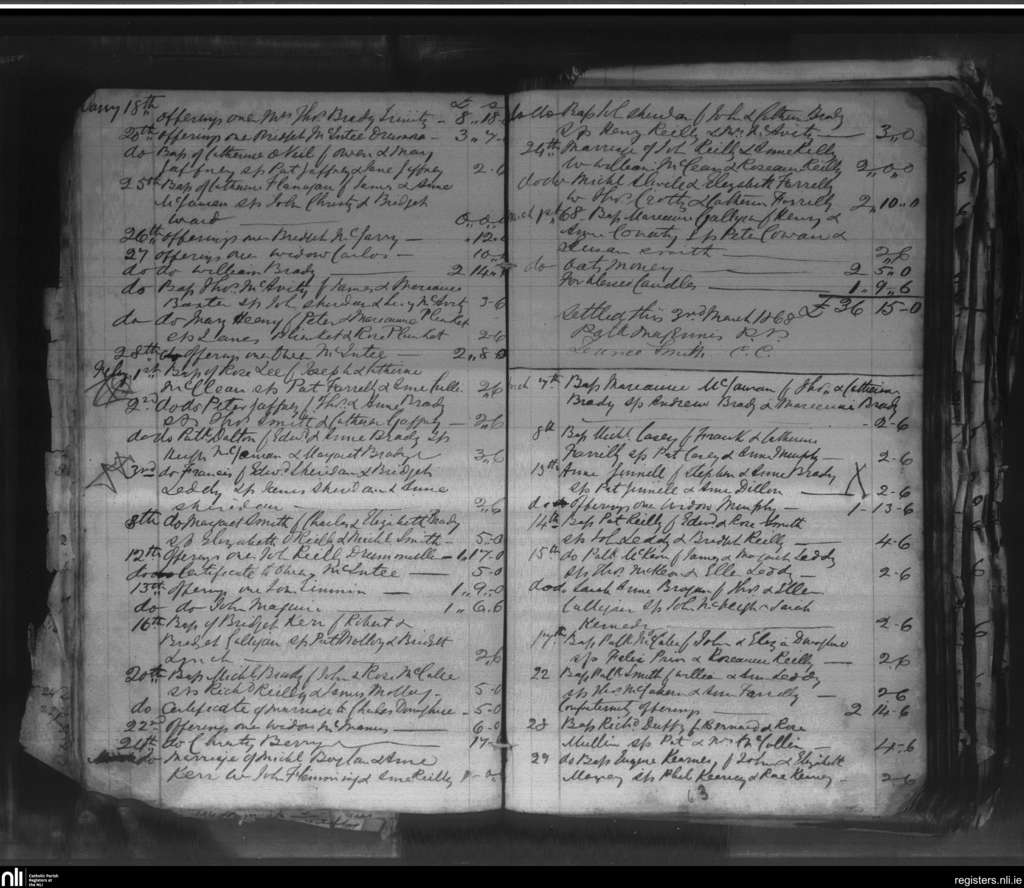 Janry 18th offerings over Mrs Thos Brady Trinity - 8 " 18
20th offerings over Bridget McEntee - 3 " 7
do Bap of Catherine O Neil of Owen & Mary
Gaffney sp Pat Gaffney & Jane Gaffney 2-6
25th Bap of Catherine Flanagan of James & Anne
McGauran sps John Christy & Bridget
Ward 0 " 0 " 0
26th offerings over Bridget McGarry - " 12 "
27 offerings over widow Carlos - 10 "
do do William Brady 2 14 "
do Bap Thos McAvity of James & Marianne
Baxter sp Joh Sheridan & Lucy McAvity 3-6
do do Mary Heery of Peter & Marianne Plunket
sps James Plunket & Rose Plunket 2 6
28th Offerings over Owen McEntee 2 " 8 " 0
Feby 1st Bap of Rose Lee of Joseph & Catherine
McClean sp Pat Farrelly & Anne 2 " 6
2nd do do Peter Gaffney of Thos & Anne Brady
sps Thos Smith & Catherine Gaffney 2 " 6
do do Patk Dalton of Edwd & Anne Brady Sps
Hugh McGauran & Margaret Brady 3 " 6
3rd do Francis of Edwd Sheridan & Bridget
Leddy sp James Sheridan & Anne
Sheridan 2 " 6
8th do Margaret Smith of Charles & Elizabeth Brady
sp Elizabeth O Reilly & Michl Smith 5-0
12th Offerings over Joh Reilly Drumomuell 1 " 17-0
do Certificate to McEntee 5-0
13th Offerings over 1 " 9 " 0
do do John Maguire 1 " 6 " 6
16th Bap of Bridget Kerr of Robert &
Bridget Galligan sp Pat Molloy & Bridget
Lynch 2 " 6
20th Bap Michl Brady of John & Rose McCabe
sps Richd Reilly & James Molloy 5-0
do Certificate of marriage to Charles Donohue 5-0
22nd Offerings over widow McManus 6-0
24th do Christy Berry 17
do Marriage of Michl Boylan & Anne
Kerr W John Fleming & Anne Reilly
Bap Joh Sheridan of Joh & Cathern Brady
Sp Henry Reilly & Mrs McAvity 3 " 0
24th Marriage of Joh Reilly & Anne Reilly
W William McClean & Roseann Reilly 2 " 0 " 0
do do Michl & Elizabeth Farrelly
W Thos Crotty & Catherin Farrelly 2 " 10 " 0
Mch 1st 68. Bap Marianne Galligan of Henry &
Anne Sp Peter Cowan &
Susan Smith 2 " 6
do Oats Money 2 5 " 0
For Wax Candles 1 " 9 " 6
£ 36 15-0
Settled this 3rd March 1868
Patk Maginnis P.P.
Terence Smith C.C.
Mch 7th Bap Marianne McGauran of Thos & Catherine
Brady sp Andrew Brady & Marianne Brady
2-6
8th Bap Michl Casey of Frank & Catherine
Farrelly sp Pat Casey & Anne Murphy 2-6
13th Anne Jinnell of Stephen & Anne Brady
sp Pat Jinnell & Ann Dillon 2-6
do Offerings over widow Murphy 1-13-6
14th Bap Pat Reilly of Edwd & Rose Smith
sp Joh Leddy & Bridget Reilly 4-6
15th do Patk McKeon of James & Margaret Leddy
sps Thos McKeon & Ellen Leddy 2-6
do do Sarah Anne Brogan of Thos & Ellen
Galligan sp John McVeigh & Sarah
Kennedy 2-6
17th Bap Patk McCabe of John & Eliza Donohue
sps Felix Prior & Roseanne Reilly 2 6
22 Bap Patk Smith of William & Ann Leddy
sp Thos McGahern & Ann Farrelly 2-6
Confraternity offerings 2 14-6
23 Bap Richd Duffy of Bernard & Rose
Mullin sp Pat & 4-6
29 do Bap Eugene Kearney of John & Elizabeth
Maxey sp Phil Kearney & Rose Kearney 2-6
63
nli
Catholic Parish
Registers at
the NLI
registers.nli.ie